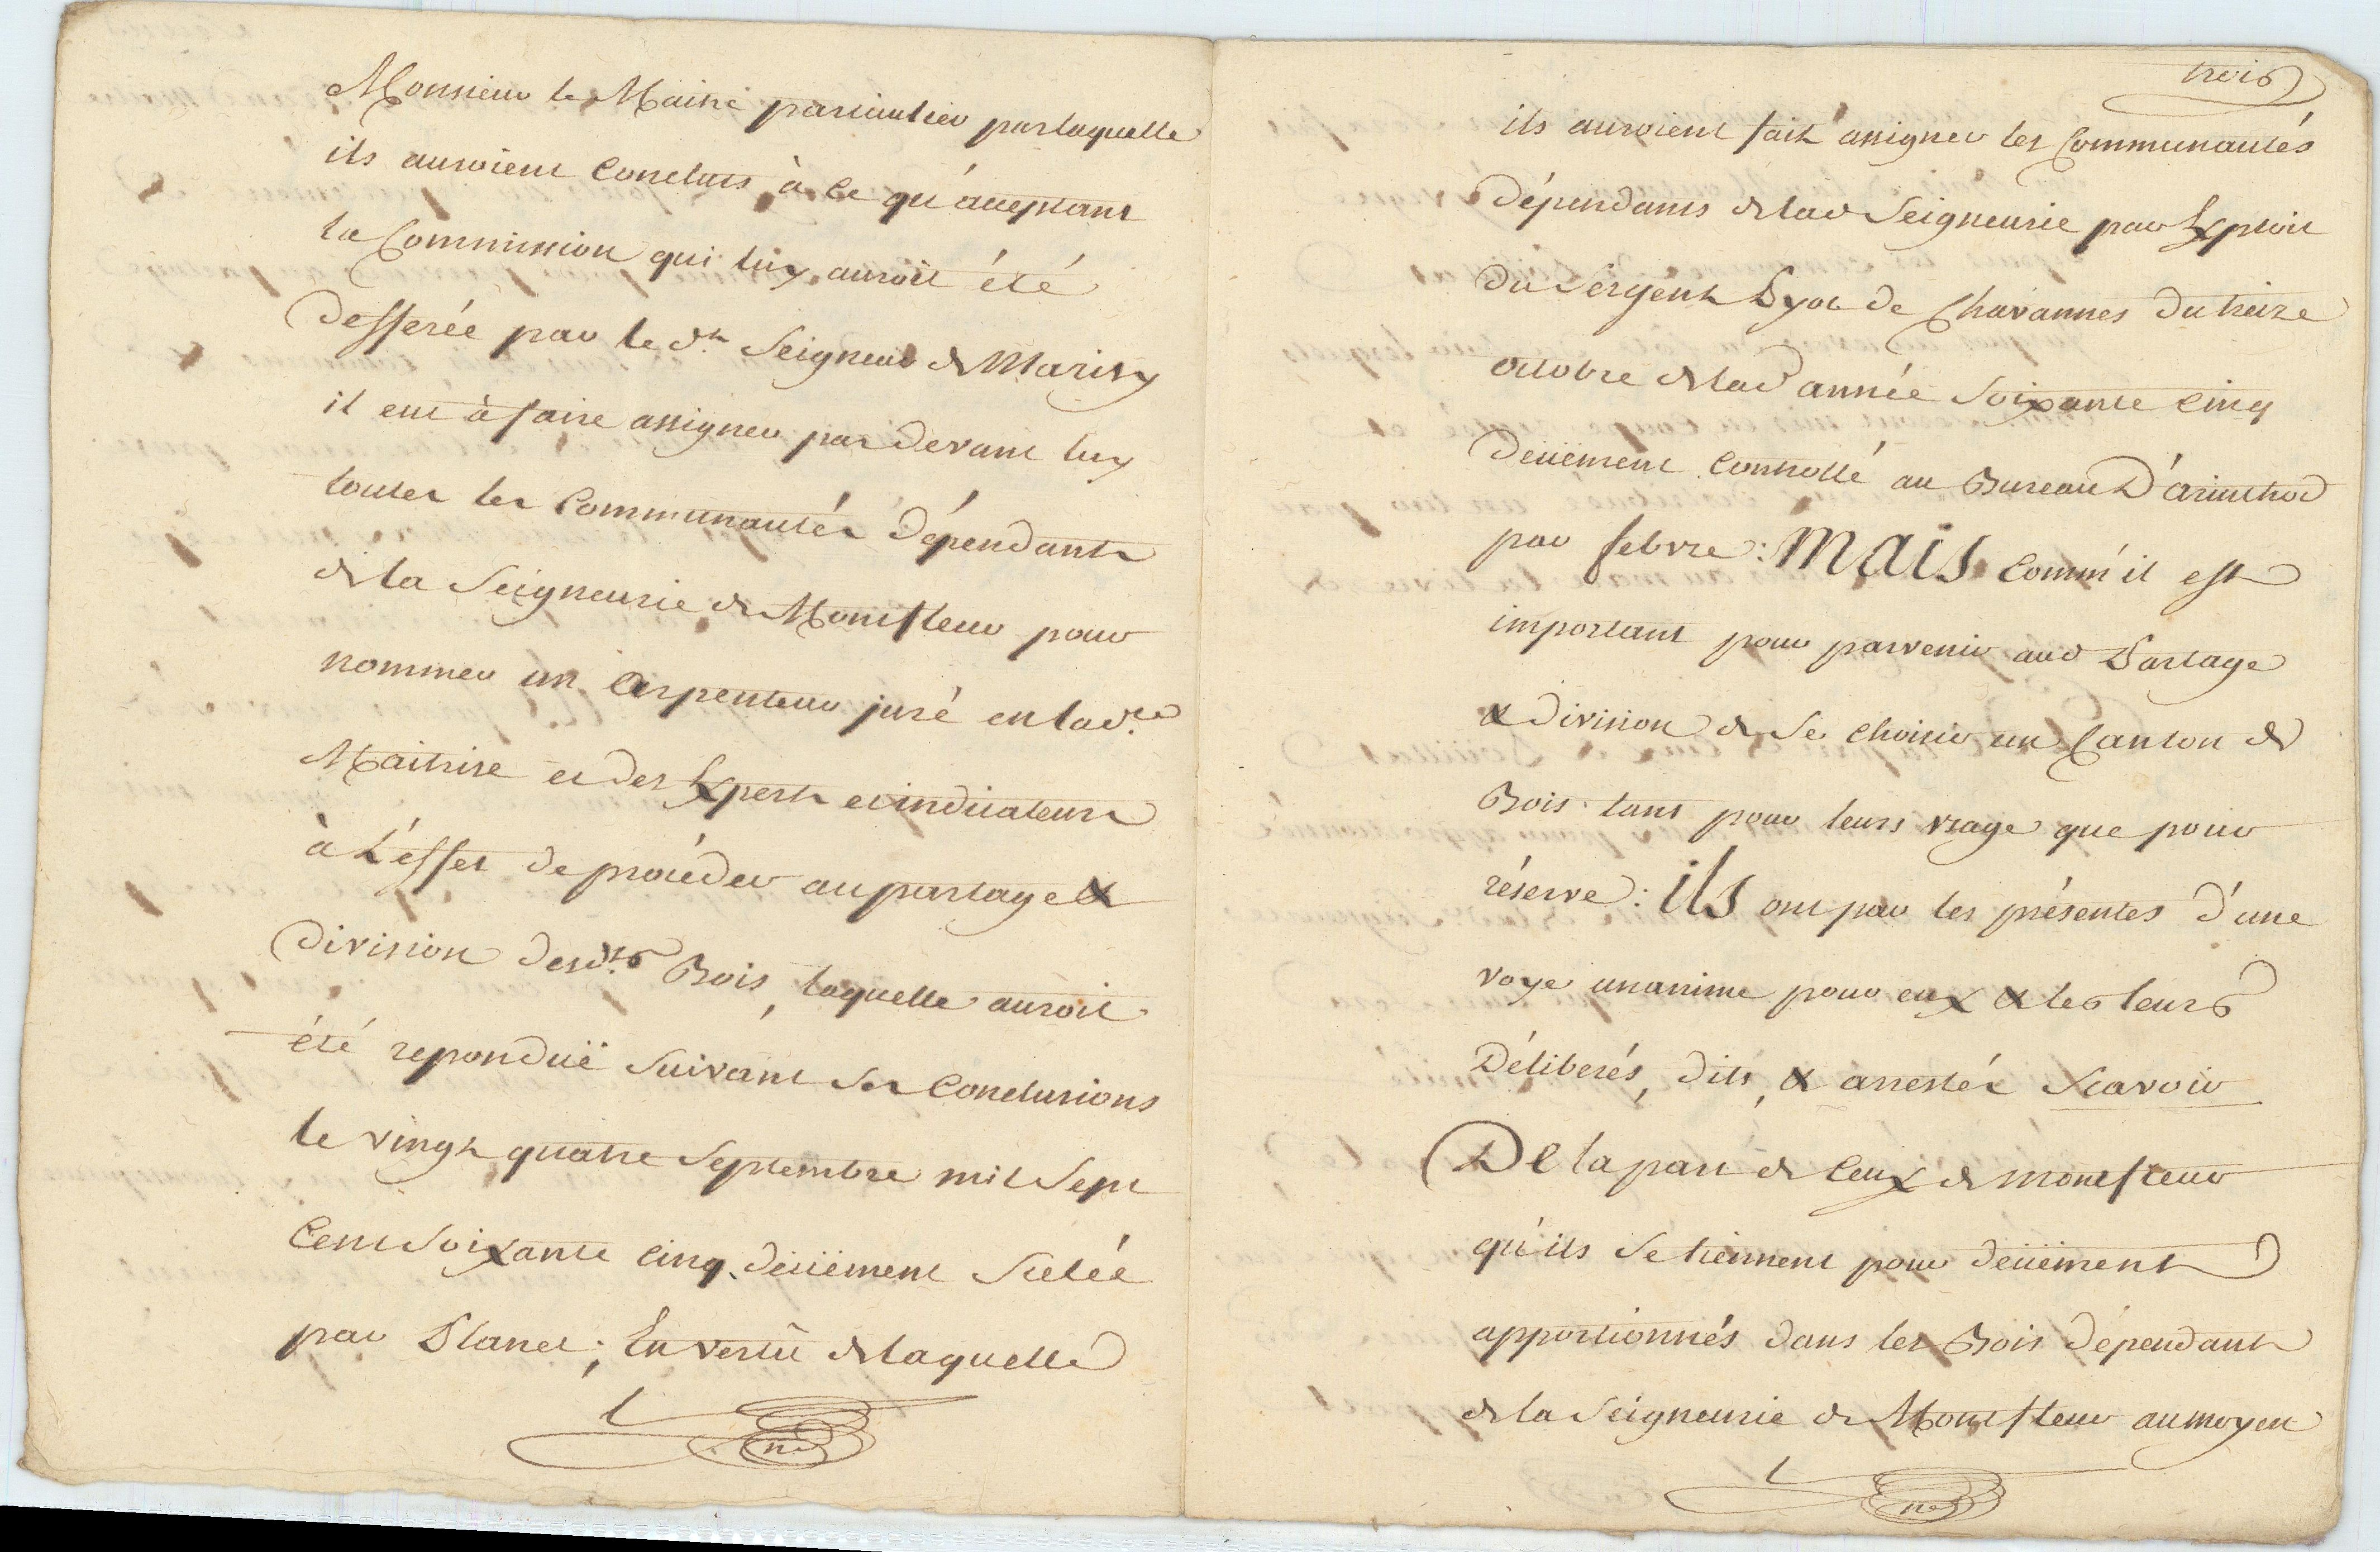 Monsieur le Maitre particulier par laquelle
ils auroient Conclus à Ce qu'acceptant
la Commission qui luy auroit été
defferée par le dt Seigneur de Marisy
il eut à faire assigner par devant luy
toutes les Communautés dépendants
de la Seigneurie de Montfleur pour
nommer un Arpenteur juré en lad.te
Maitrise et des Experts et indicateurs
à L'effet de procéder au partage &
division desd.ts Bois, laquelle auroit
été reponduë suivant ses Conclusions
le vingt quatre Septembre mil Sept
Cent Soixante Cinq, deüement Scelée
par Planet; En vertû de laquelle
trois
ils auroient fait assigner les Communautés
dépendants de lad Seigneurie par Exploit
du Sergent Lyot de Chavannes du treize
octobre de lad année Soixante Cinq
deüement Controllé au Bureau D'arinthod
par febvre: Mais Comm'il est
important pour parvenir aud Partage
& division de se choisir un Canton de
Bois tant pour leurs usage que pour
réserve: ils ont par les présentes d'une
voye unanime pour eux & les leurs
Déliberés, dits, & arrestés Scavoir
De la part de Ceux de montfleur
qu'ils se tiennent pour deüement
apportionnés dans les Bois dépendants
de la Seigneurie de Montfleur au moyen